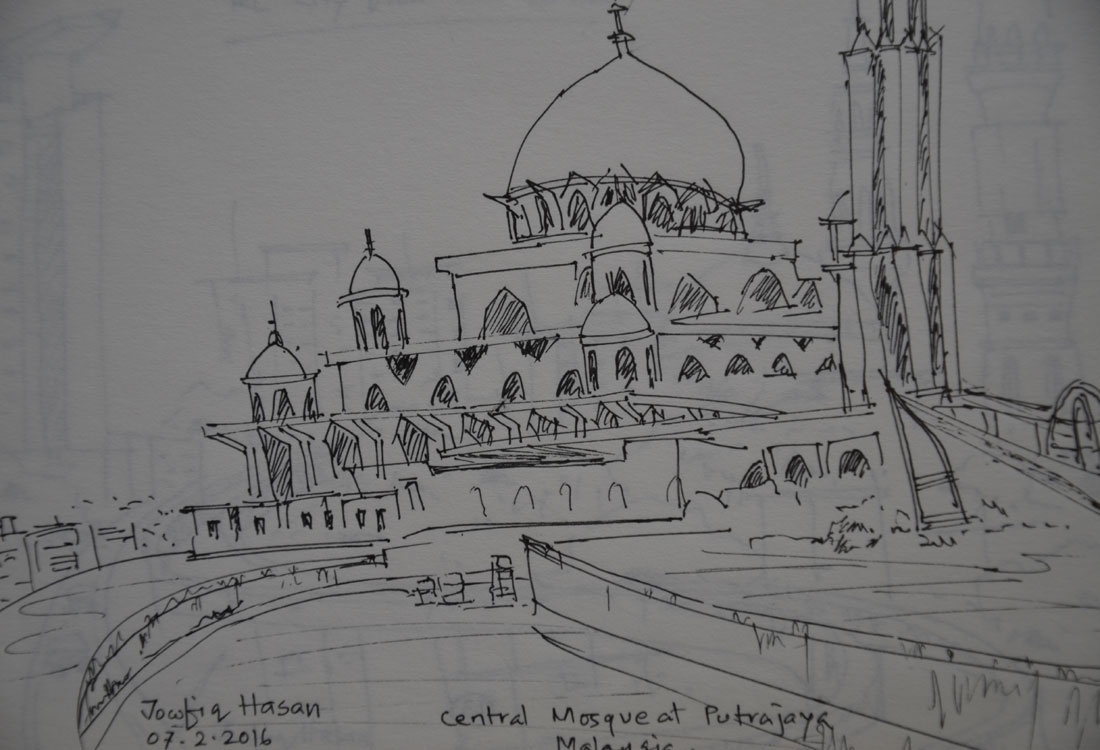 Towfiq Hasan
07.2.2016
Central Mosque at Putrajaya
Malaysia.